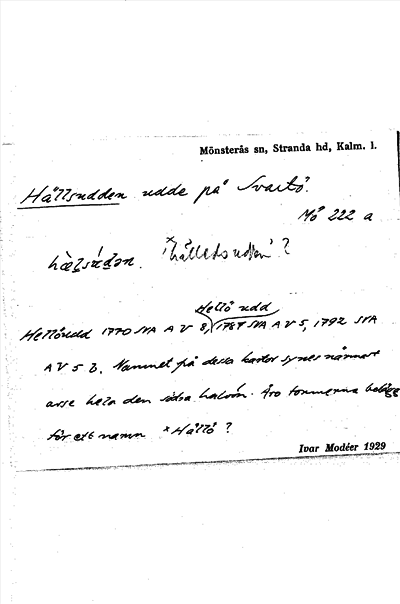 Mönsterås sn, Stranda hd, Kalm. l.
Hällsudden udde på Svartö.
Mö 222 a
*'hälletsudden' ?
Hellö udd
Hellöudd 1770 SVA A V 8, 1787 SVA A V 5, 1792 SVA
A V 5 2. Namnet på dessa kartor synes närmast
avse hela den södra halvön. Äro formerna belägg
för ett namn *Hällö ?
Ivar Modéer 1929